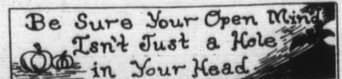 Be Sure Your Open Mind
Isn't Just a Hole
in Your Head